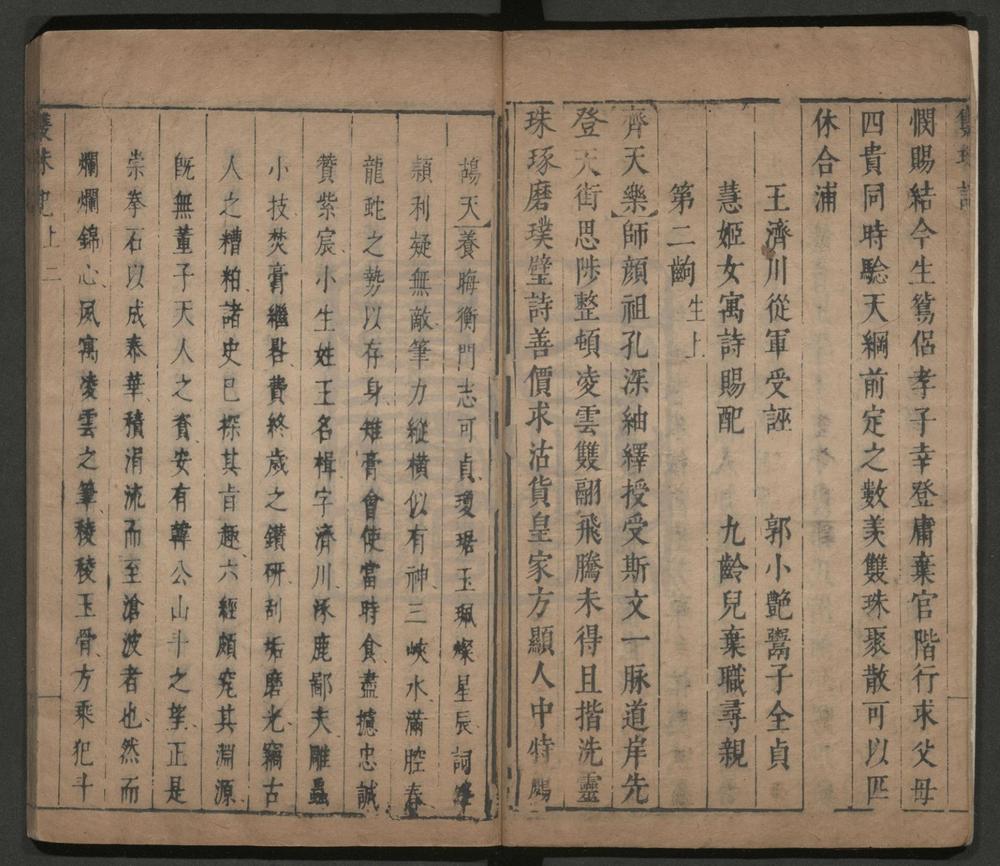 雙珠記
憫賜結今生鴛侶孝子幸登庸棄官階行求父母
四貴同時騐天綱前定之數美雙珠聚散可以匹
休合浦
王濟川從軍受誣　郭小艶鬻子全貞
慧姬女寓詩賜配　九齡兒棄職尋親
第二齣生上
齊天樂師顔祖孔深紬繹授受斯文一脉道岸先
登天街思陟整頓凌雲雙翮飛騰未得且揩洗靈
珠琢磨璞璧詩善價求沽貨皇家方顯人中特鷓
鴣天養晦衡門志可貞瓊琚玉珮燦星辰詞鋒
頴利疑無敵筆力縱橫似有神三峽水滿腔春
龍虵之勢以存身雉膏會使當時食盡攄忠誠
贊紫宸小生姓王名楫字濟川涿鹿鄙夫雕蟲
小技焚膏繼晷費終歲之鑽研刮垢磨光竊古
人之糟粕諸史已探其旨趣六經頗究其淵源
旣無董子天人之資安有韓公山斗之望正是
崇拳石以成泰華積涓流而至滄波者也然而
爛爛錦心夙寓凌雲之筆稜稜玉骨方乘犯斗
雙珠記上二